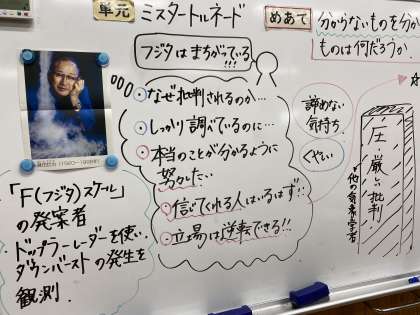 単元 ミスタートルネード
めあて 分からないものを分か
ものは何だろうか
フジタはまちがっている
!!!
なぜ批判されるのか…
しっかり調べているのに…
本当のことが分かるように
努力したい
信じてくれる人はいるはず!!
立場は逆転できる!!
諦めない
気持ち
くやしい
圧 厳しい批判!
他の気象学者
「F(フジタ)スケール」
の発案者
・ドップラーレーダーを使い、
ダウンバーストの発生を
観測.